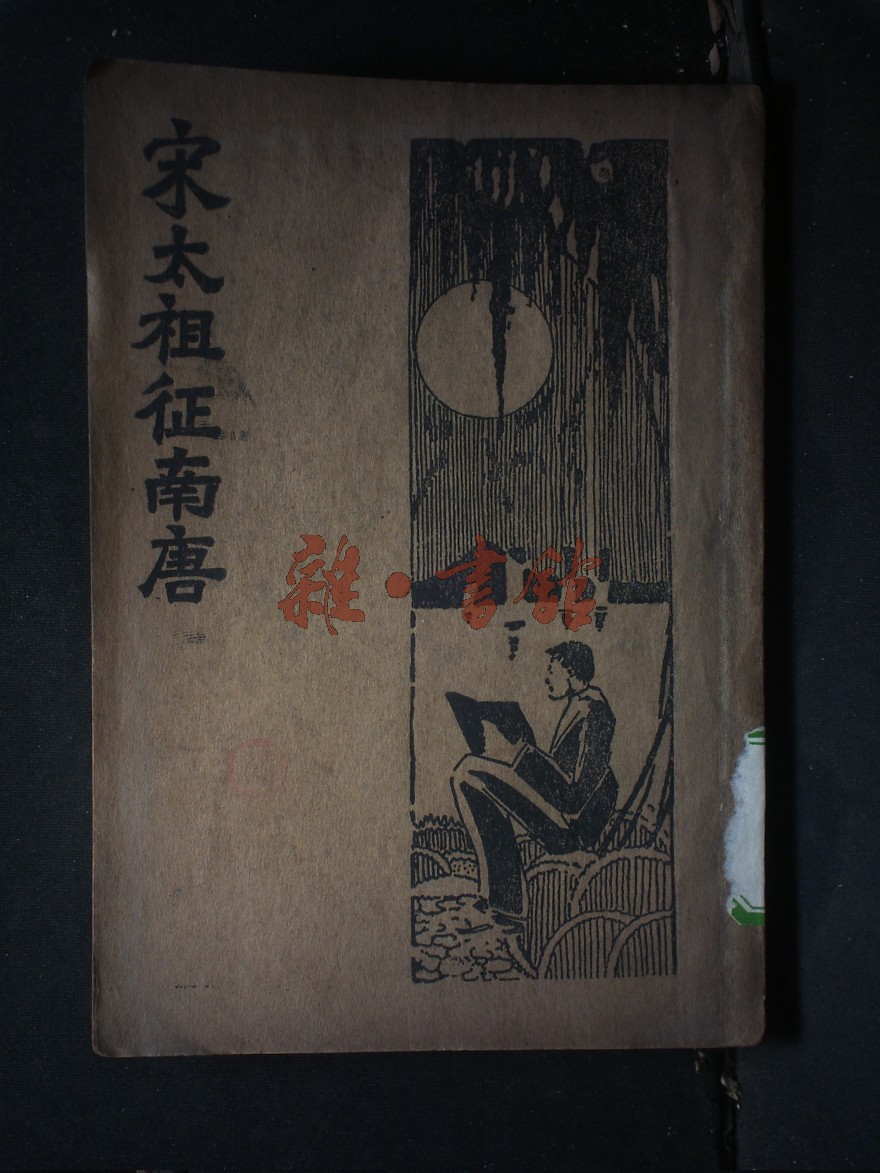 宋太祖征南唐
雜·書館